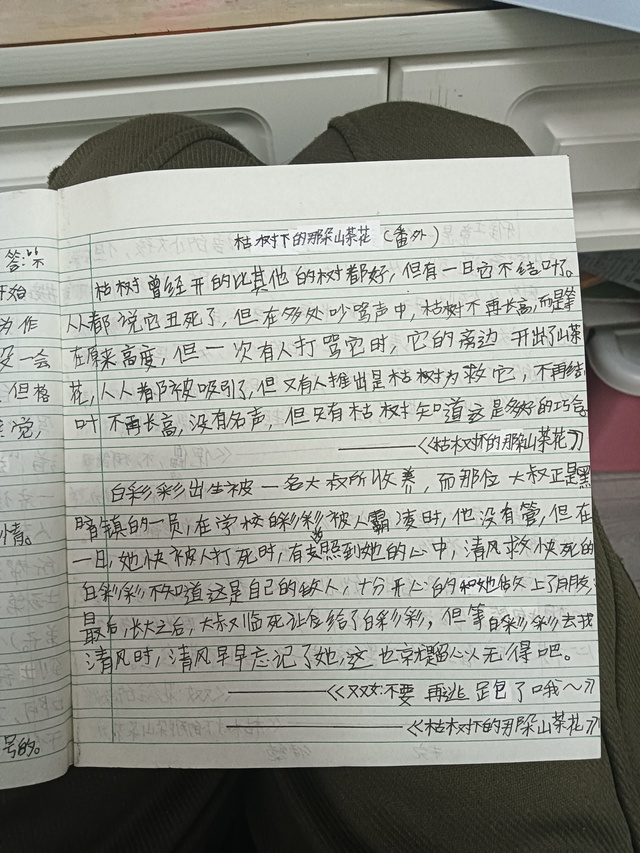 答："不
开始
为作
没一会
但格
觉，
情。
号的。
枯树下的那朵山茶花（番外）
枯树曾经开的比其他的树都好，但有一日它不结叶了。
人人都说它丑死了，但在多处吵骂声中，枯树不再长高，而是等
在原来高度，但一次有人打骂它时，它的旁边开出了山茶
花，人人都被吸引了，但又有人推出是枯树为救它，不再结
叶不再长高，没有名声，但只有枯树知道这是多好的巧合。
——《枯树下的那朵山茶花》
白彩彩出生被一名大叔所收养，而那位大叔正是黑
暗镇的一员，在学校白彩彩被人霸凌时，他没有管，但在
一日，她快被人打死时，有光照到她的心中，清风救快死的
白彩彩，不知道这是自己的敌人，十分开心的和她做上了朋友，
最后，长大之后，大叔临死让位给了白彩彩，但等白彩彩去找
清风时，清风早早忘记了她，这也就留心人无得吧。
——《双双：不要再逃跑了哦～》
——《枯树下的那朵山茶花》